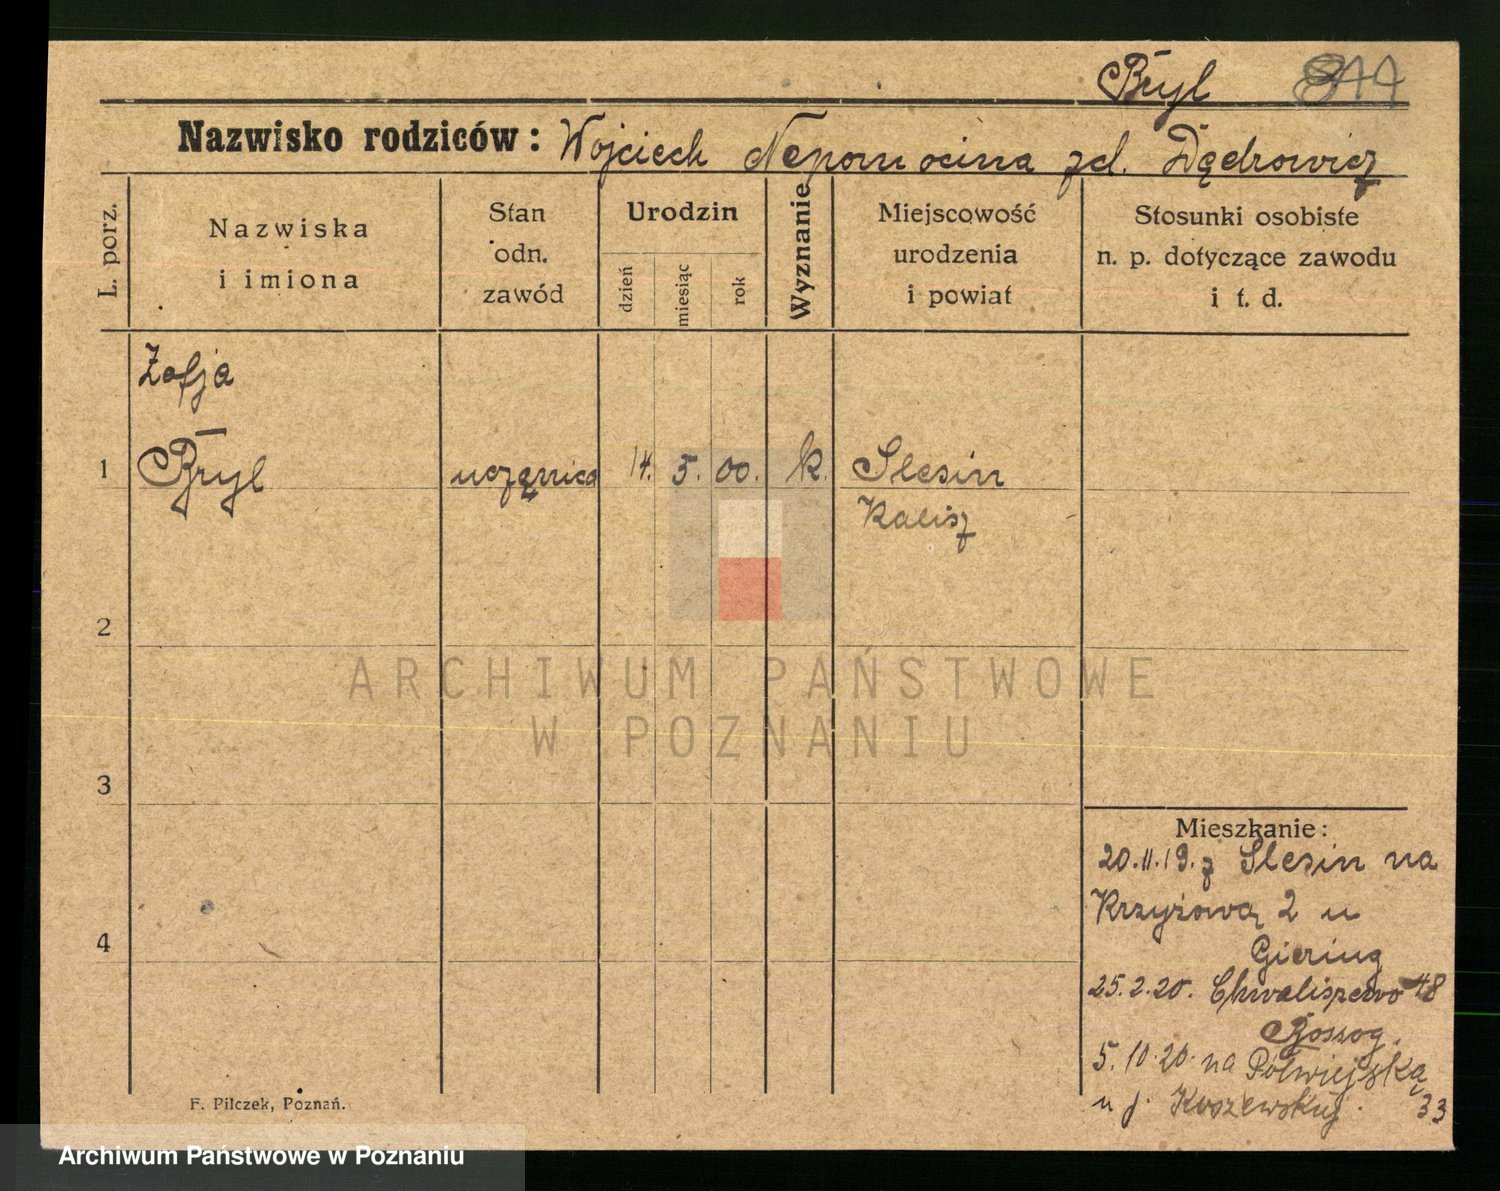 Bryl 844
Nazwisko rodziców: Wojciech Nepomocina zd. Dądrowicz
L. porz.
Nazwiska
i imiona
Stan
odn.
zawód
Urodzin
dzień
miesiąc
rok
Wyznanie
Miejscowość
urodzenia
i powiat
Stosunki osobiste
n. p. dotyczące zawodu
i t. d.
Zofja
1 Bryl uczęnica 14. 5. 00. k. Slesin
Kalisz
2
ARCHIWUM PAŃSTWOWE
W POZNANIU
3
Mieszkanie:
20.11.19. z Slesin na
Krzyżową 2 u
4
Giering
25.2.20. Chwaliszewo 48
5.10.20. na Półwiejską
u j. Koszewskiej. 33
F. Pilczek, Poznań.
Archiwum Państwowe w Poznaniu